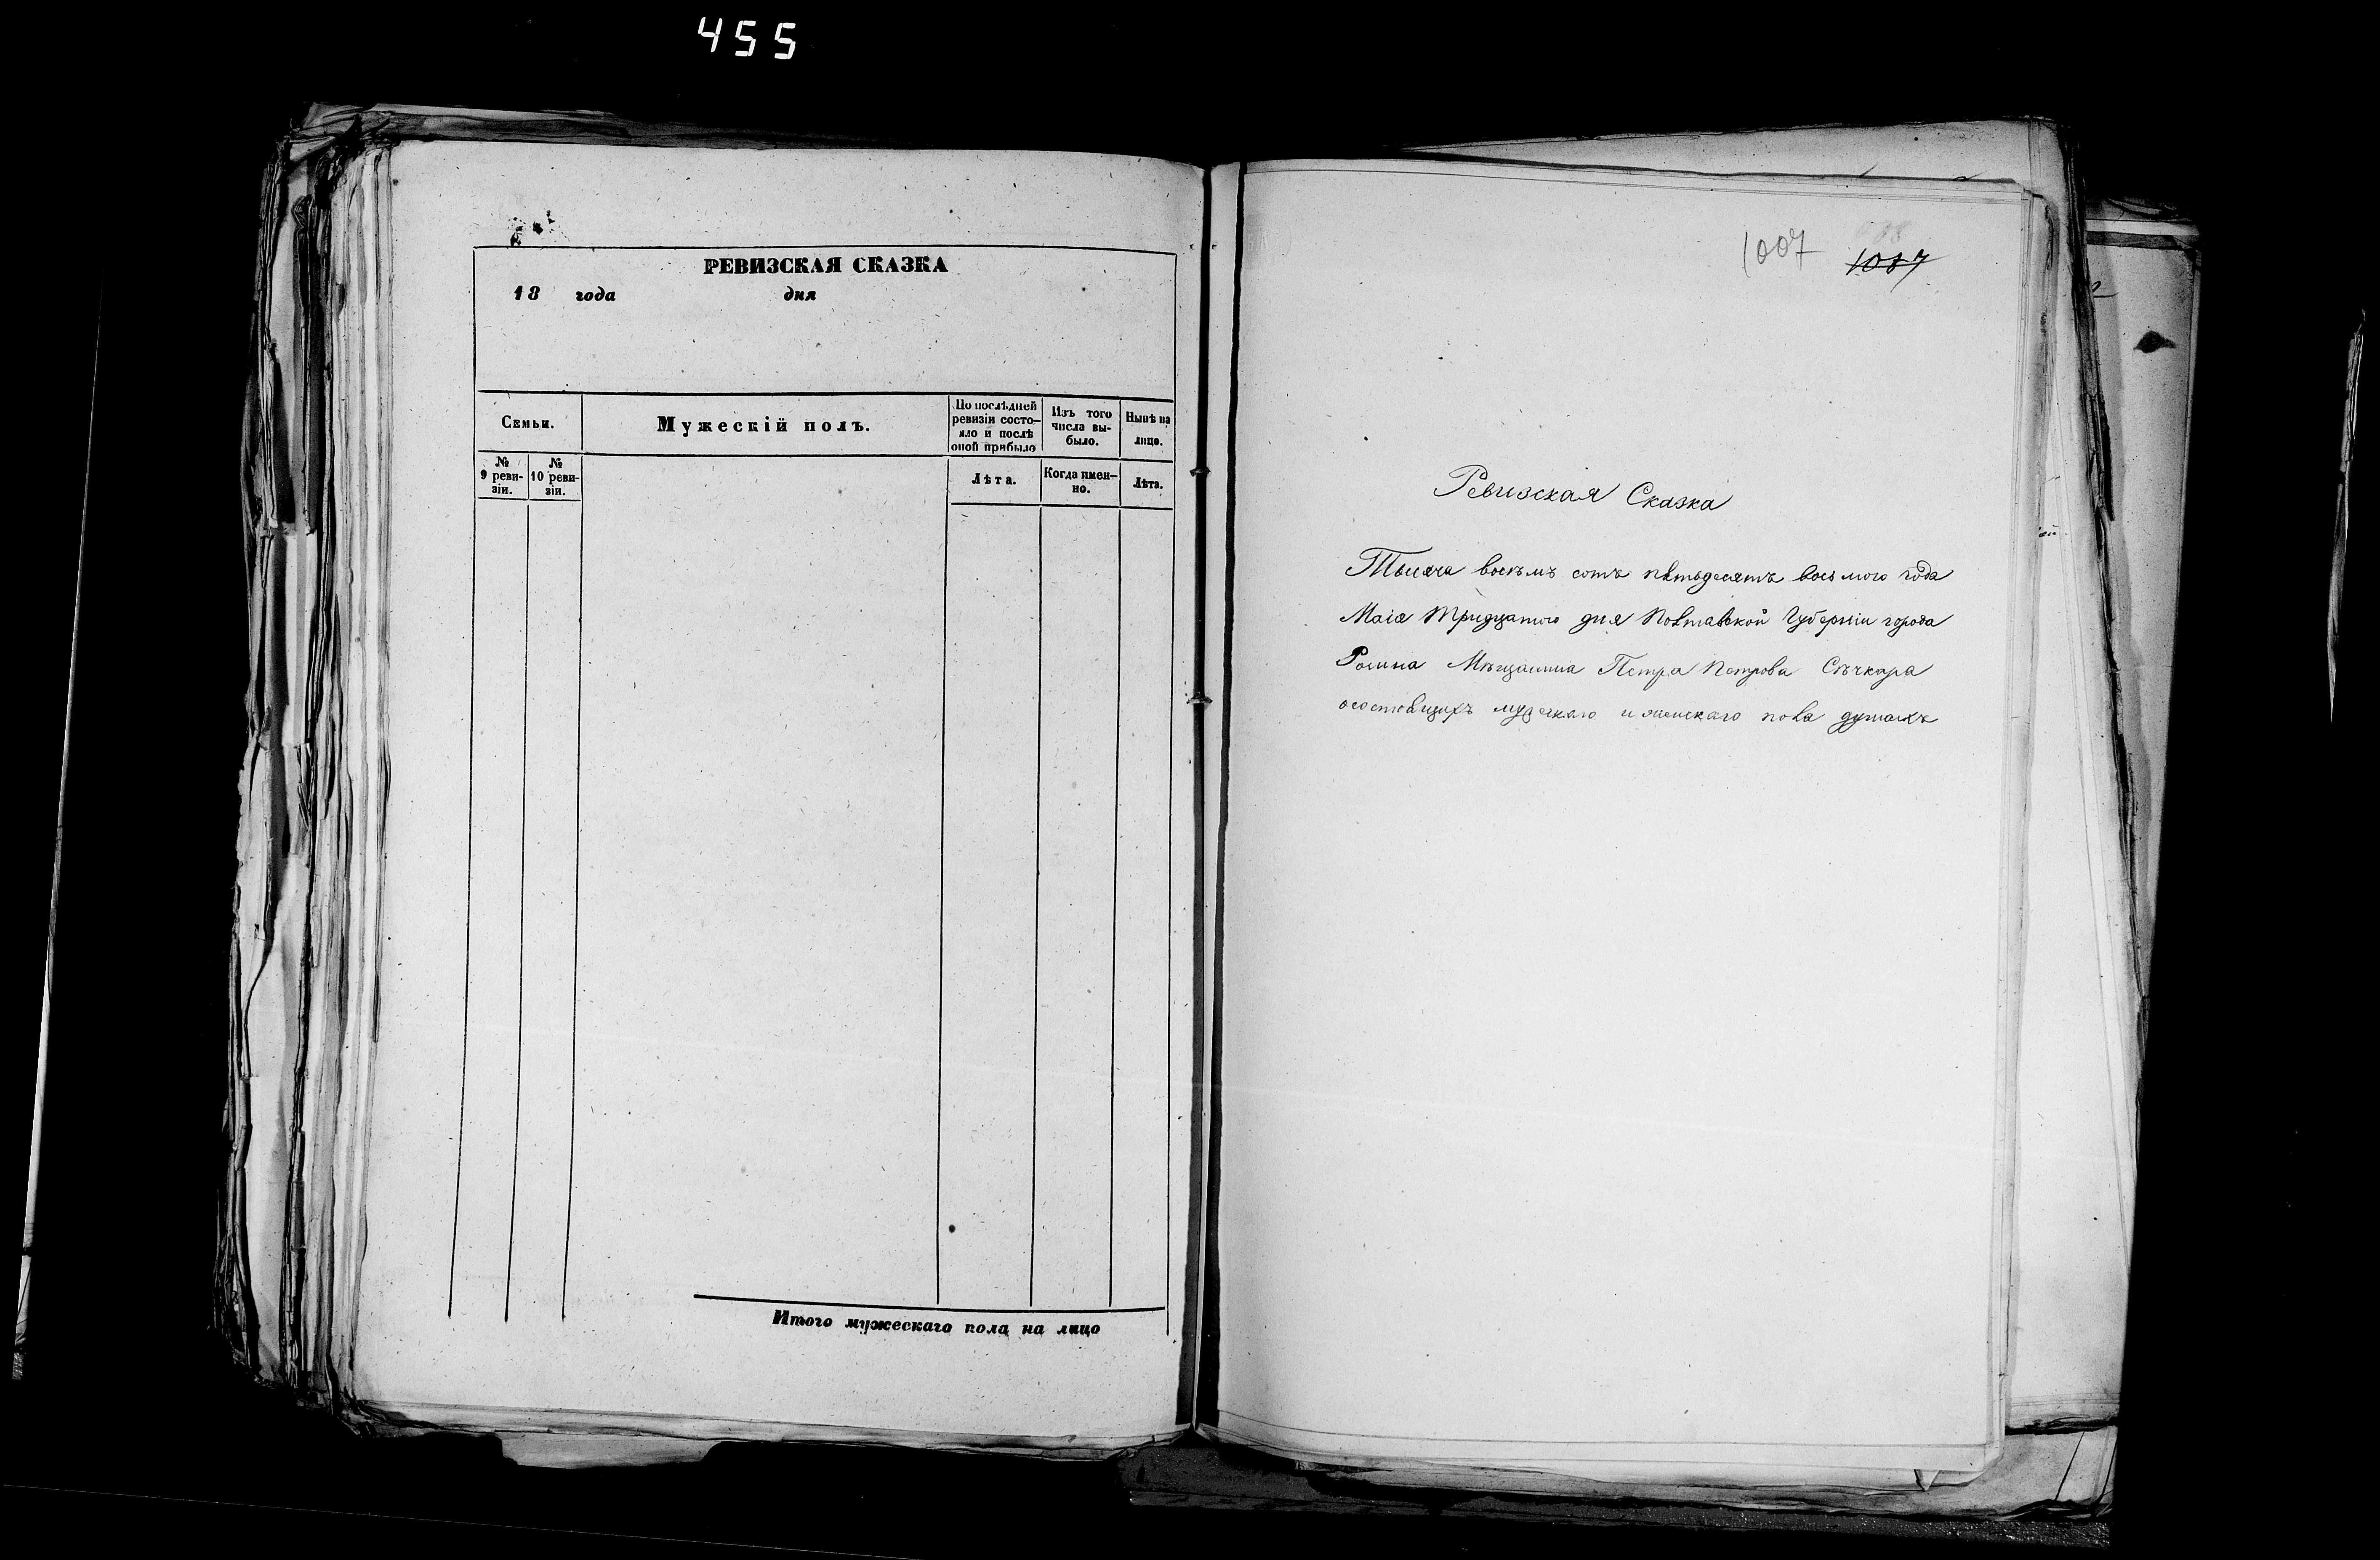 455
РЕВИЗСКАЯ СКАЗКА
18 года дня
Семьи.
Мужескій полъ.
По послѣдней
ревизіи состо-
яло и послѣ
оной прибыло
Изъ того
числа вы-
было.
Нынѣ на
лицо.
№
9 реви-
зіи.
№
10 реви-
зіи.
Лѣта.
Когда имен-
но.
Лѣта.
Итого мужескаго пола на лицо
1007 1087
Ревизская Сказка
Тысяча восемъ сотъ пятьдесятъ восьмого года
Маія тридцатого дня Полтавской Губерніи города
Ромна Мѣщанина Петра Петрова Сѣчкара
осостоящихъ мужескаго и женскаго пола душахъ